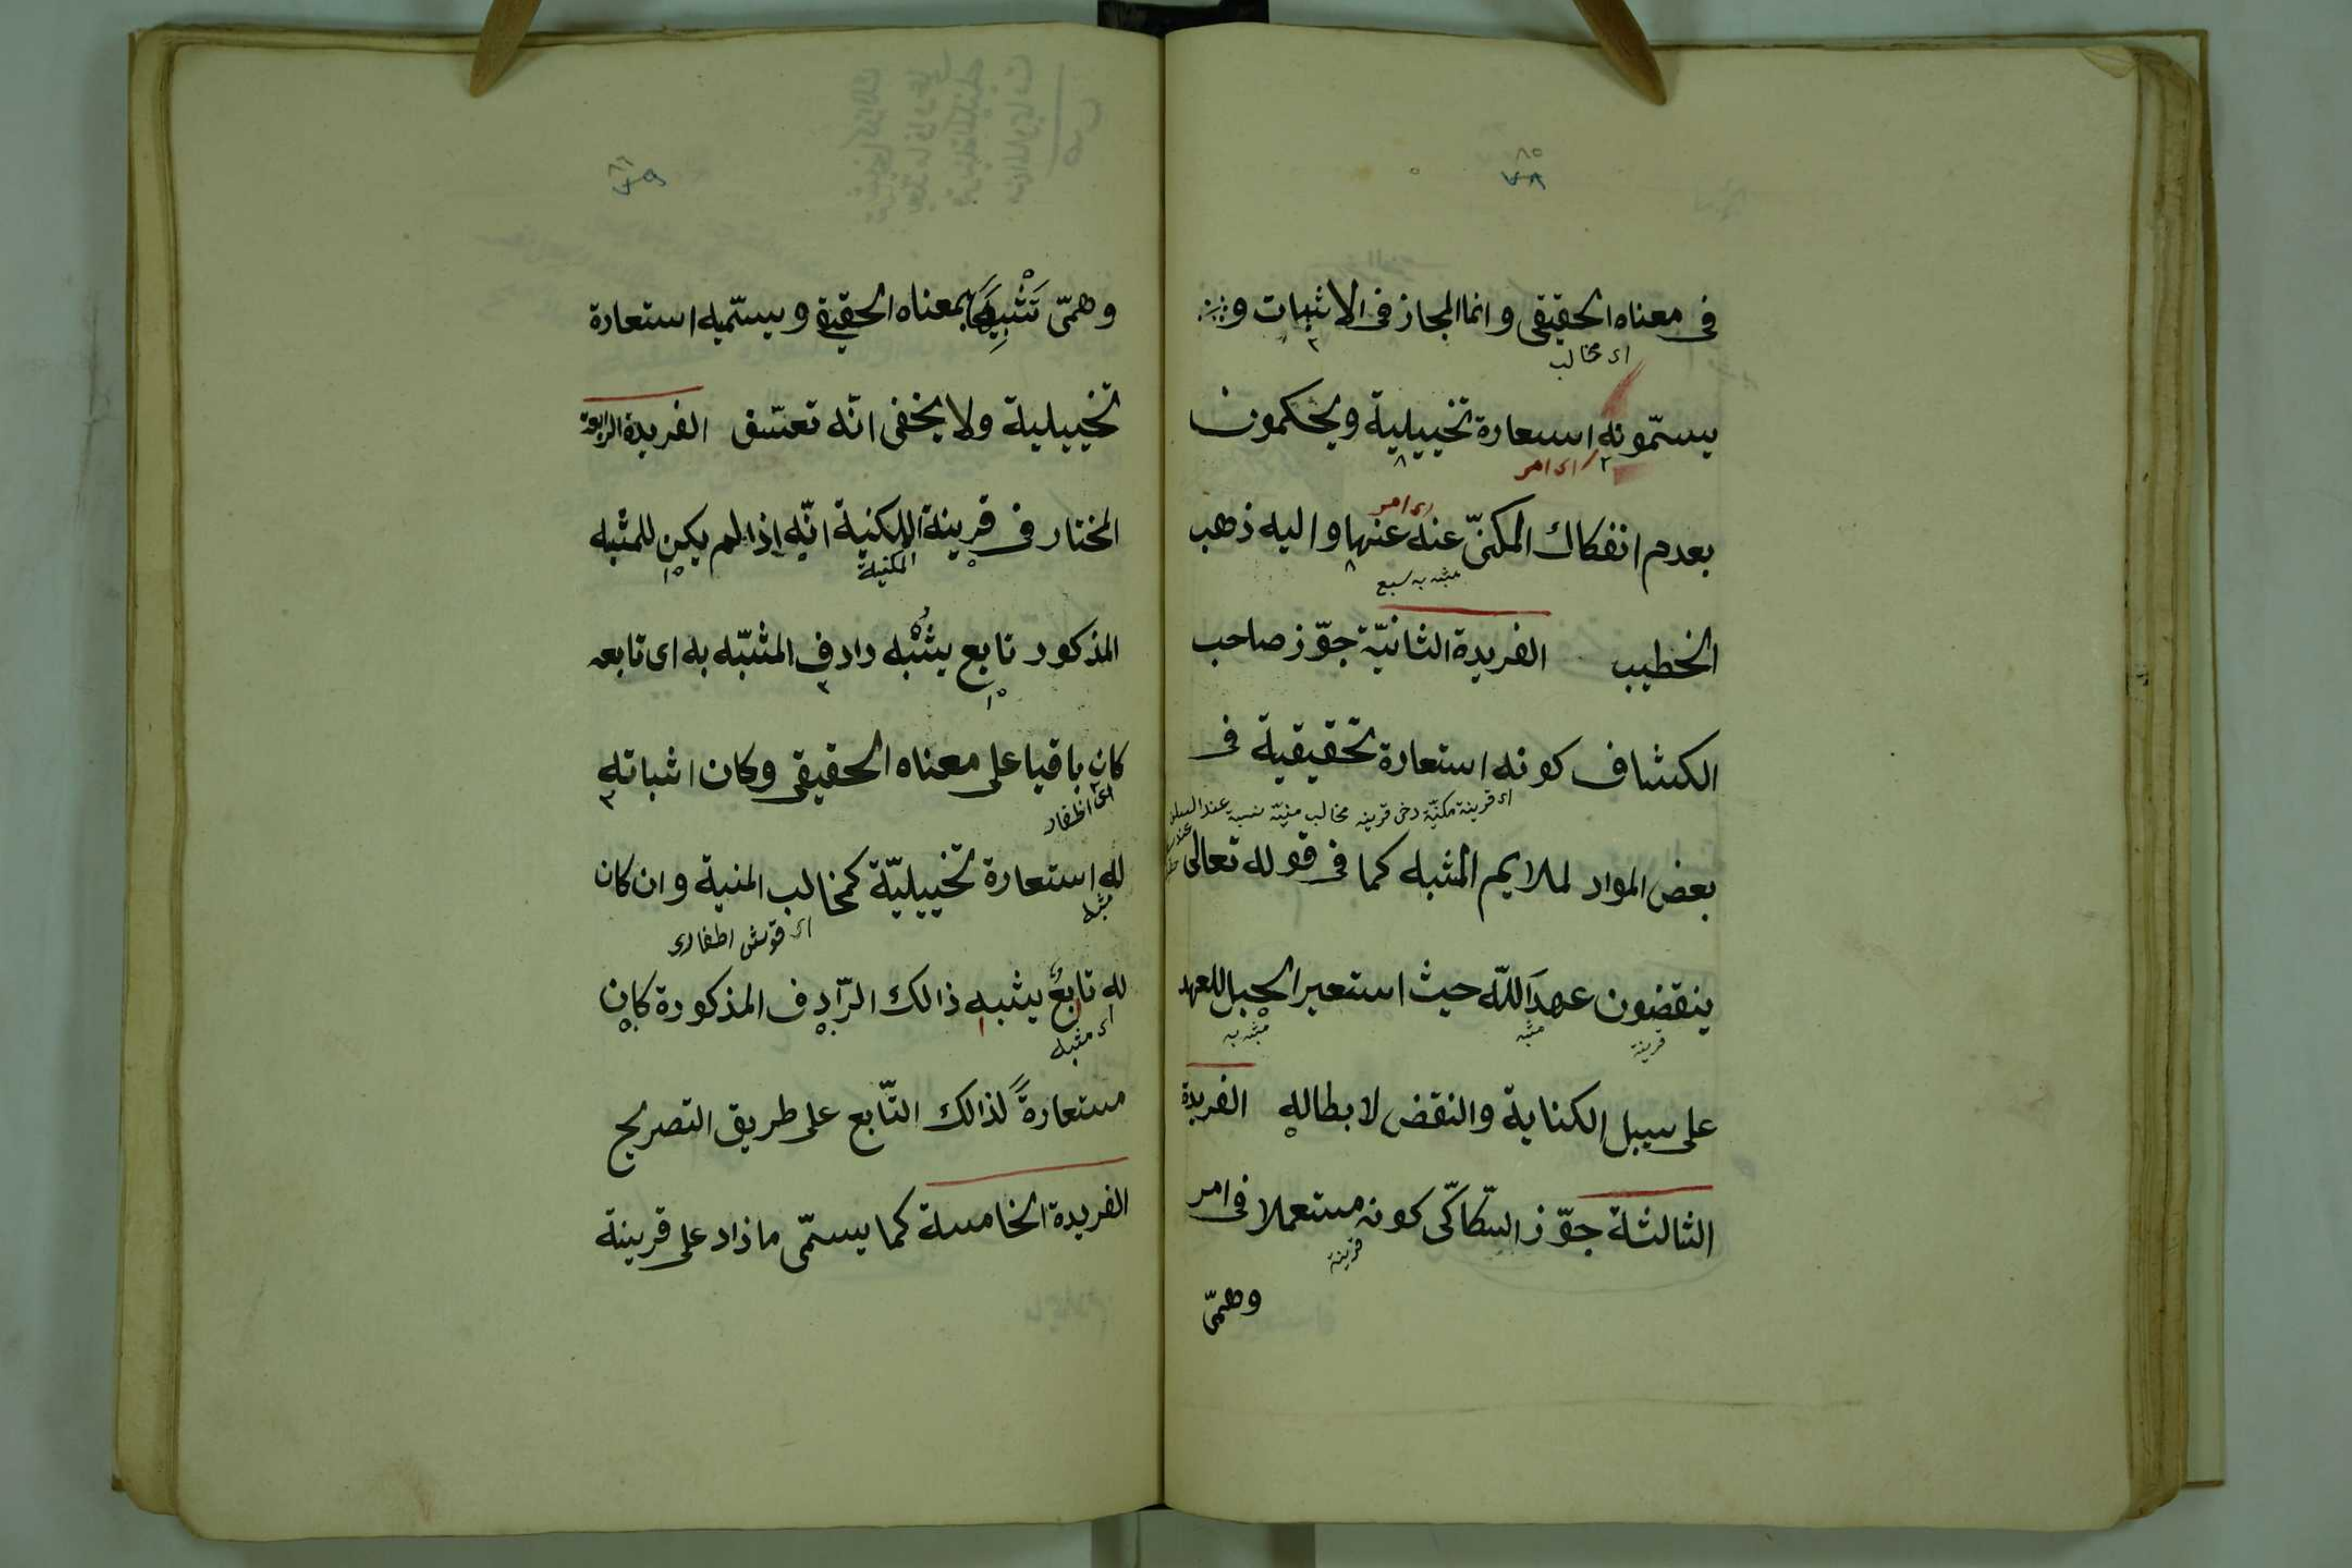 ٨٥
٧٨
فى معناه الحقيقى وانما المجاز فى الاثبات و
اى مخالب
يسمّونه استعارة تخييلية ويحكمون
اى امر
اى امر
بعدم انفكاك المكنىّ عنه عنها واليه ذهب
مشبه به سبع
الخطيب الفريدة الثانيّة جوّز صاحب
الكشاف كونه استعارة تحقيقية فى
اى قرينة مكنيّة
بعض المواد لملايم المشبه كما فى قوله تعالى
ينقضون عهدَ اللّه حيث استعير الحبل للعهد
قرينة مشبه مشبه به
على سبيل الكناية والنقض لابطاله الفريدة
الثالثة جوّز السّكاكّى كونه مستعملا فى امر
قرينة
وهمىّ
٨٦
وهمىّ تَشْبِيهًا بمعناه الحقيقى ويسمّيه استعارة
تخييلية ولا يخفى انّه تعسّف الفريدة الرابعة
المختار فى قرينة المكنية انّه إذا لم يكن للمشبه
المكنية
المذكور تابع يشْبه رادف المشبّه به اى تابعه
كان باقيا على معناه الحقيقى وكان اثباته
اى اظفار
له استعارة تخييليّة كمخالب المنية وان كان
مشبه
له تابعٌ يشبه ذالك الرّادف المذكورة كان
اى مشبه
مستعارةً لذالك التّابع على طريق التصريح
الفريدة الخامسة كما يسمّى ما زاد على قرينة